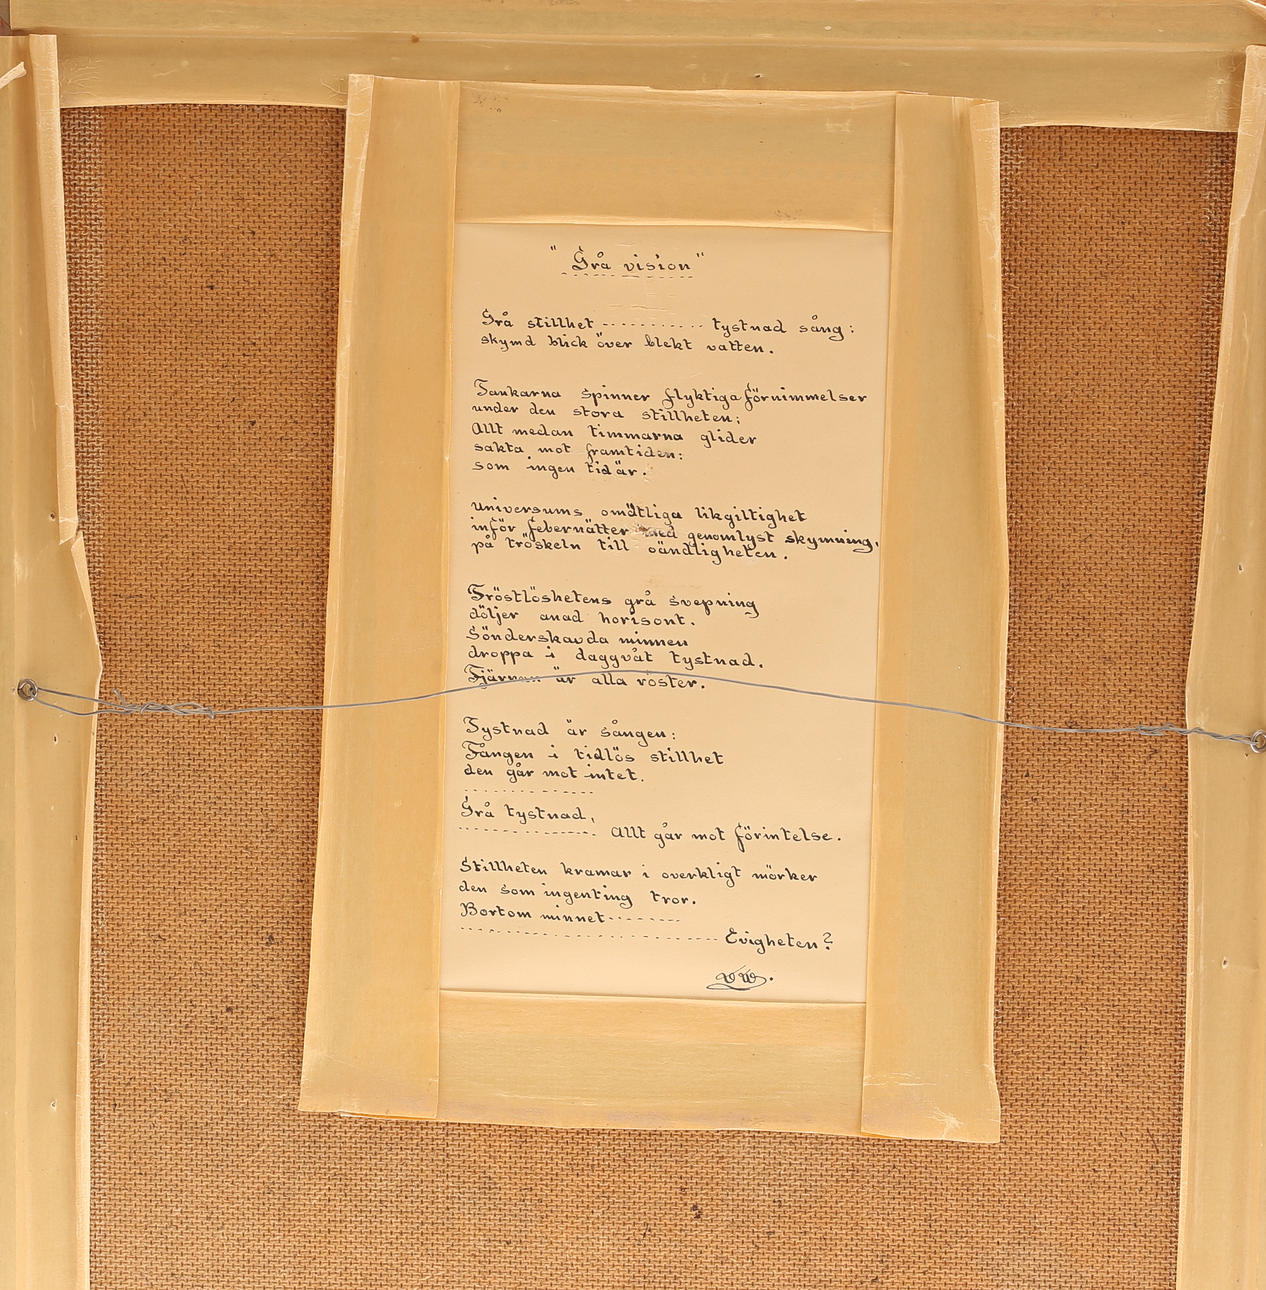 "Grå vision"
Grå stillhet ............ tystnad sång:
skymd blick över blekt vatten.
Tankarna spinner flyktiga förnimmelser
under den stora stillheten;
Allt medan timmarna glider
sakta mot framtiden:
som ingen tid är.
Universums omätliga likgiltighet
inför febernätter med genomlyst skymning,
på tröskeln till oändligheten.
Tröstlöshetens grå svepning
döljer anad horisont.
Sönderskavda minnen
droppa i daggvåt tystnad.
Fjärran är alla röster.
Tystnad är sången:
Fången i tidlös stillhet
den går mot intet.
................
Grå tystnad,
................ Allt går mot förintelse.
Stillheten kramar i overkligt mörker
den som ingenting tror.
Bortom minnet ........
............................ Evigheten?
VW.